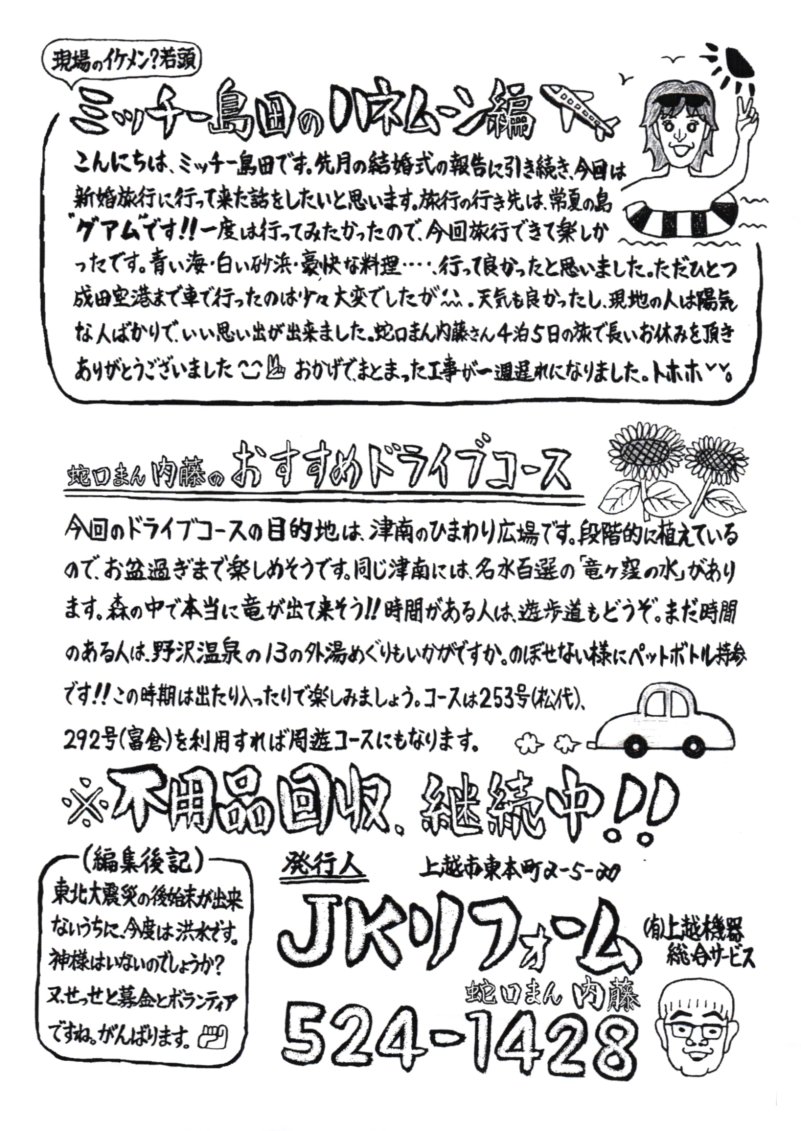 現場のイケメン?若頭
ミッチー島田のハネムーン編
こんにちは、ミッチー島田です。先月の結婚式の報告に引き続き、今回は
新婚旅行に行って来た話をしたいと思います。旅行の行き先は、常夏の島
"グアム"です!!一度は行ってみたかったので、今回旅行できて楽しか
ったです。青い海・白い砂浜・豪快な料理‥‥、行って良かったと思いました。ただひとつ
成田空港まで車で行ったのは少々大変でしたが^^;。天気も良かったし、現地の人は陽気
な人ばかりで、いい思い出が出来ました。蛇口まん内藤さん4泊5日の旅で長いお休みを頂き
ありがとうございました おかげでまとまった工事が一週遅れになりました。トホホ
蛇口まん内藤のおすすめドライブコース
今回のドライブコースの目的地は、津南のひまわり広場です。段階的に植えている
ので、お盆過ぎまで楽しめそうです。同じ津南には、名水百選の「竜ヶ窪の水」があり
ます。森の中で本当に竜が出て来そう!!時間がある人は、遊歩道もどうぞ。まだ時間
のある人は、野沢温泉の13の外湯めぐりもいかがですか。のぼせない様にペットボトル持参
です!!この時期は出たり入ったりで楽しみましょう。コースは253号(松代)、
292号(富倉)を利用すれば周遊コースにもなります。
※不用品回収、継続中!!
(編集後記)
東北大震災の後始末が出来
ないうちに、今度は洪水です。
神様はいないのでしょうか?
又せっせと募金とボランティア
ですね。がんばります。
発行人 上越市東本町2-5-20
JKリフォーム
(有)上越機器
総合サービス
蛇口まん 内藤
524-1428